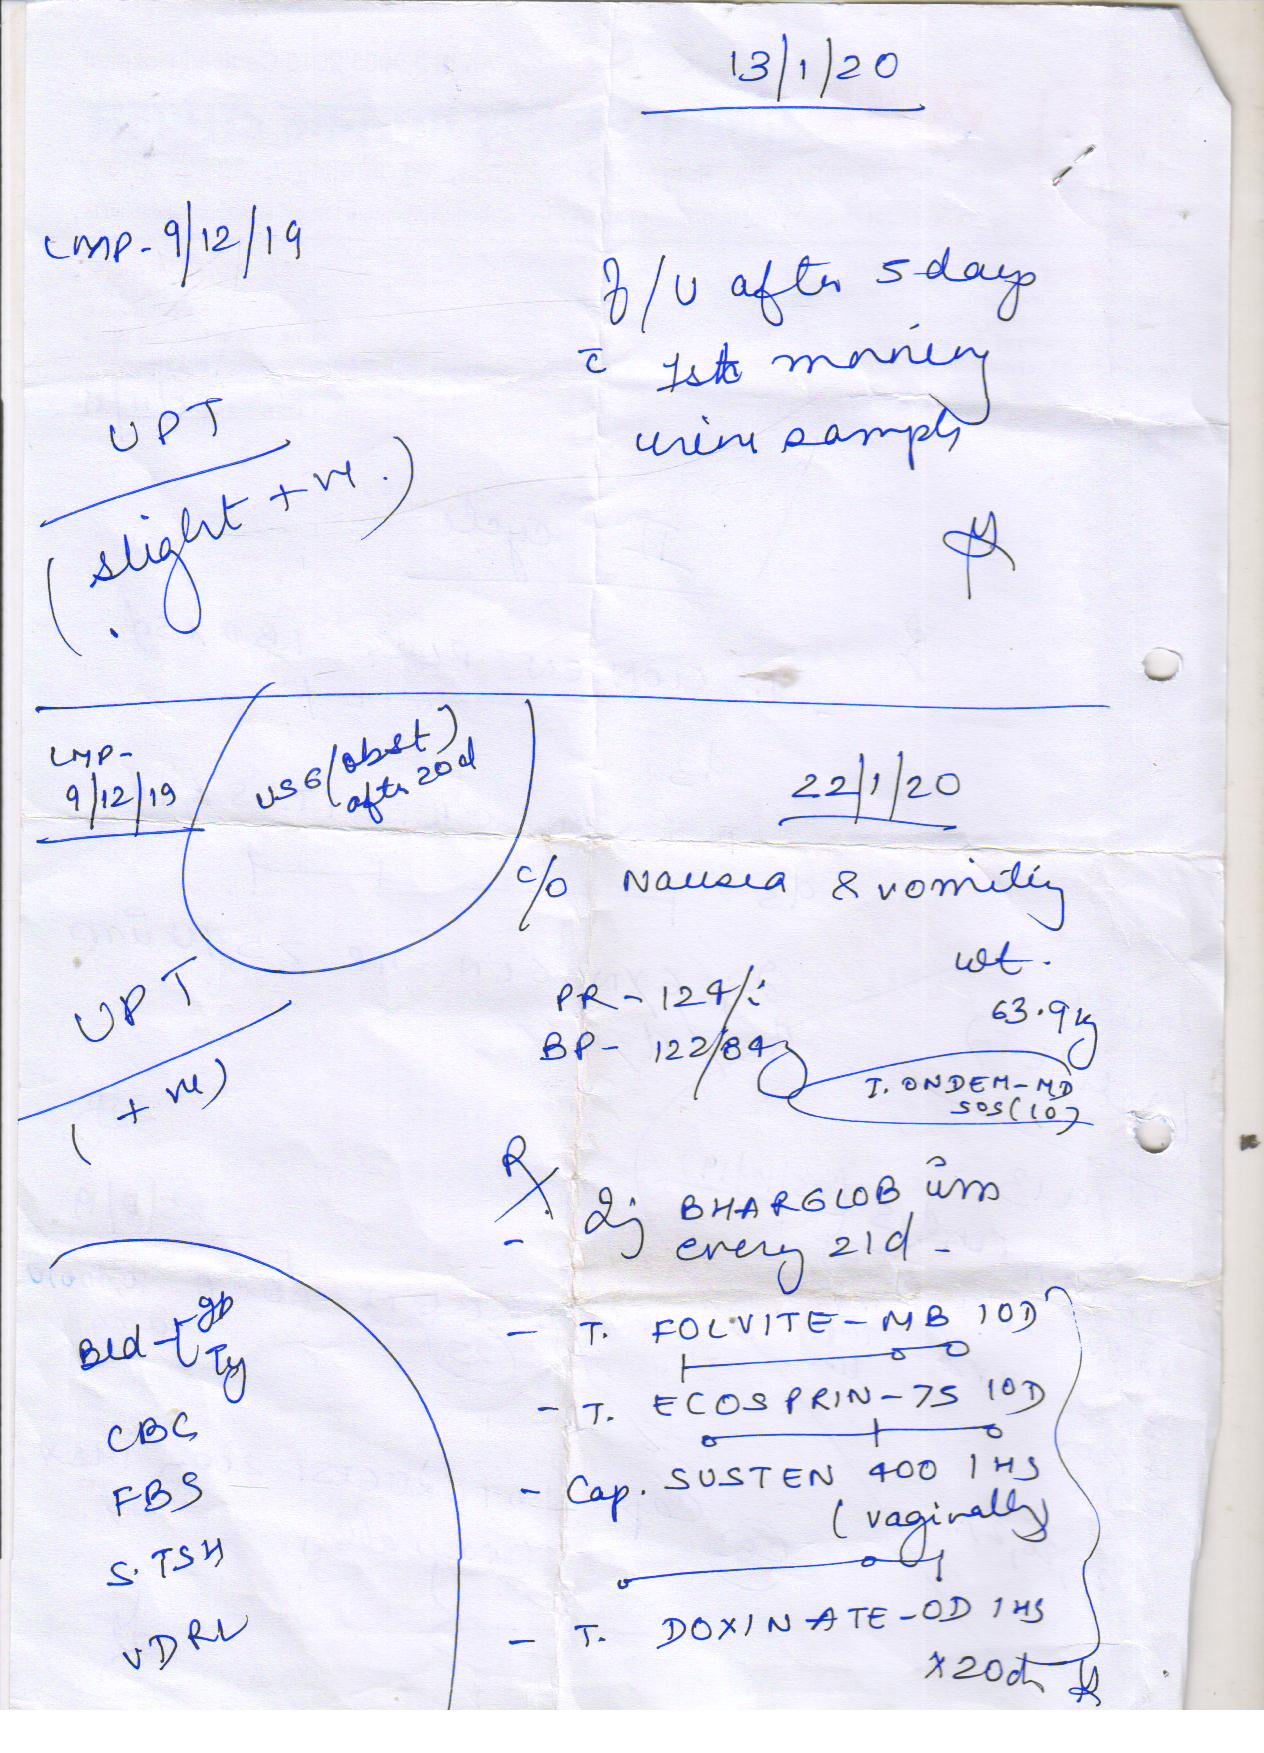 13/1/20
LMP- 9/12/19
F/U after 5 days
c̄ 1st morning
urine sample
UPT
(slight +ve.)
LMP-
9/12/19
USG (obst)
after 20d
22/1/20
c/o Nausea & vomiting
wt.
63.9kg
PR - 124/
BP - 122/84
UPT
(+ve)
T. ONDEM-MD
SOS (10)
Rx
- Inj BHARGLOB im
every 21d -
- T. FOLVITE-MB 1OD
- T. ECOSPRIN-75 1OD
- Cap. SUSTEN 400 1HS
(vaginally)
- T. DOXINATE-OD 1HS
x20d
Bld - gp
Ty
CBC
FBS
S.TSH
VDRL